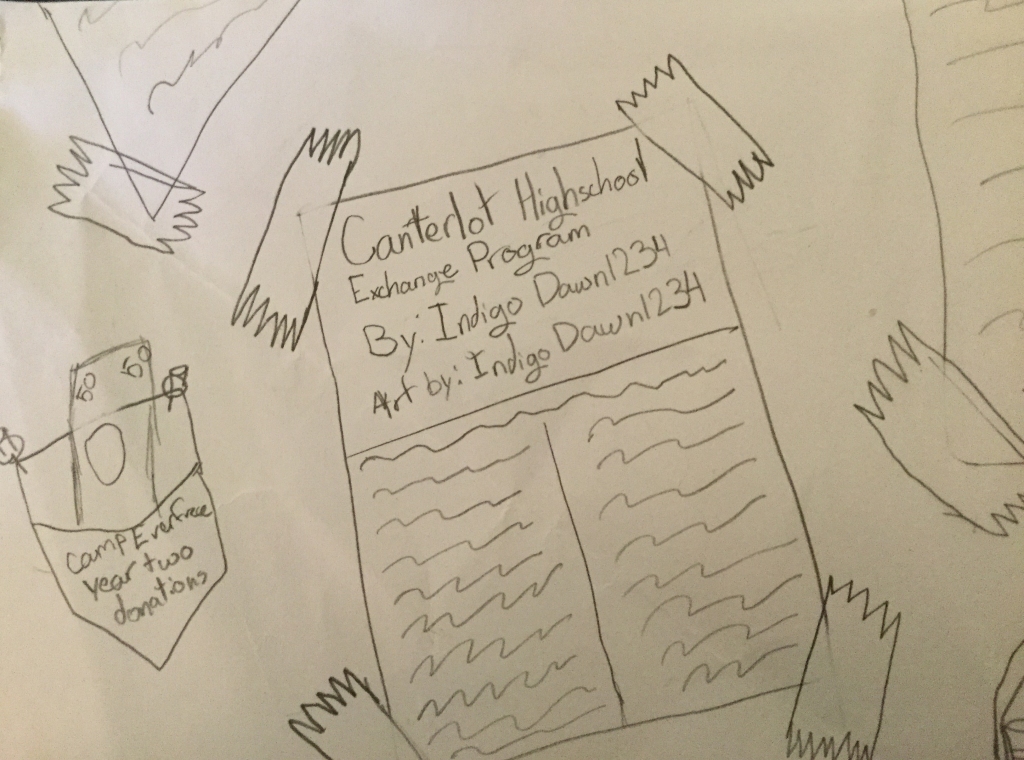 Canterlot Highschool
Exchange Program
By: Indigo Dawn1234
Art by: Indigo Dawn1234
50 50
Camp Everfree
year two
donations